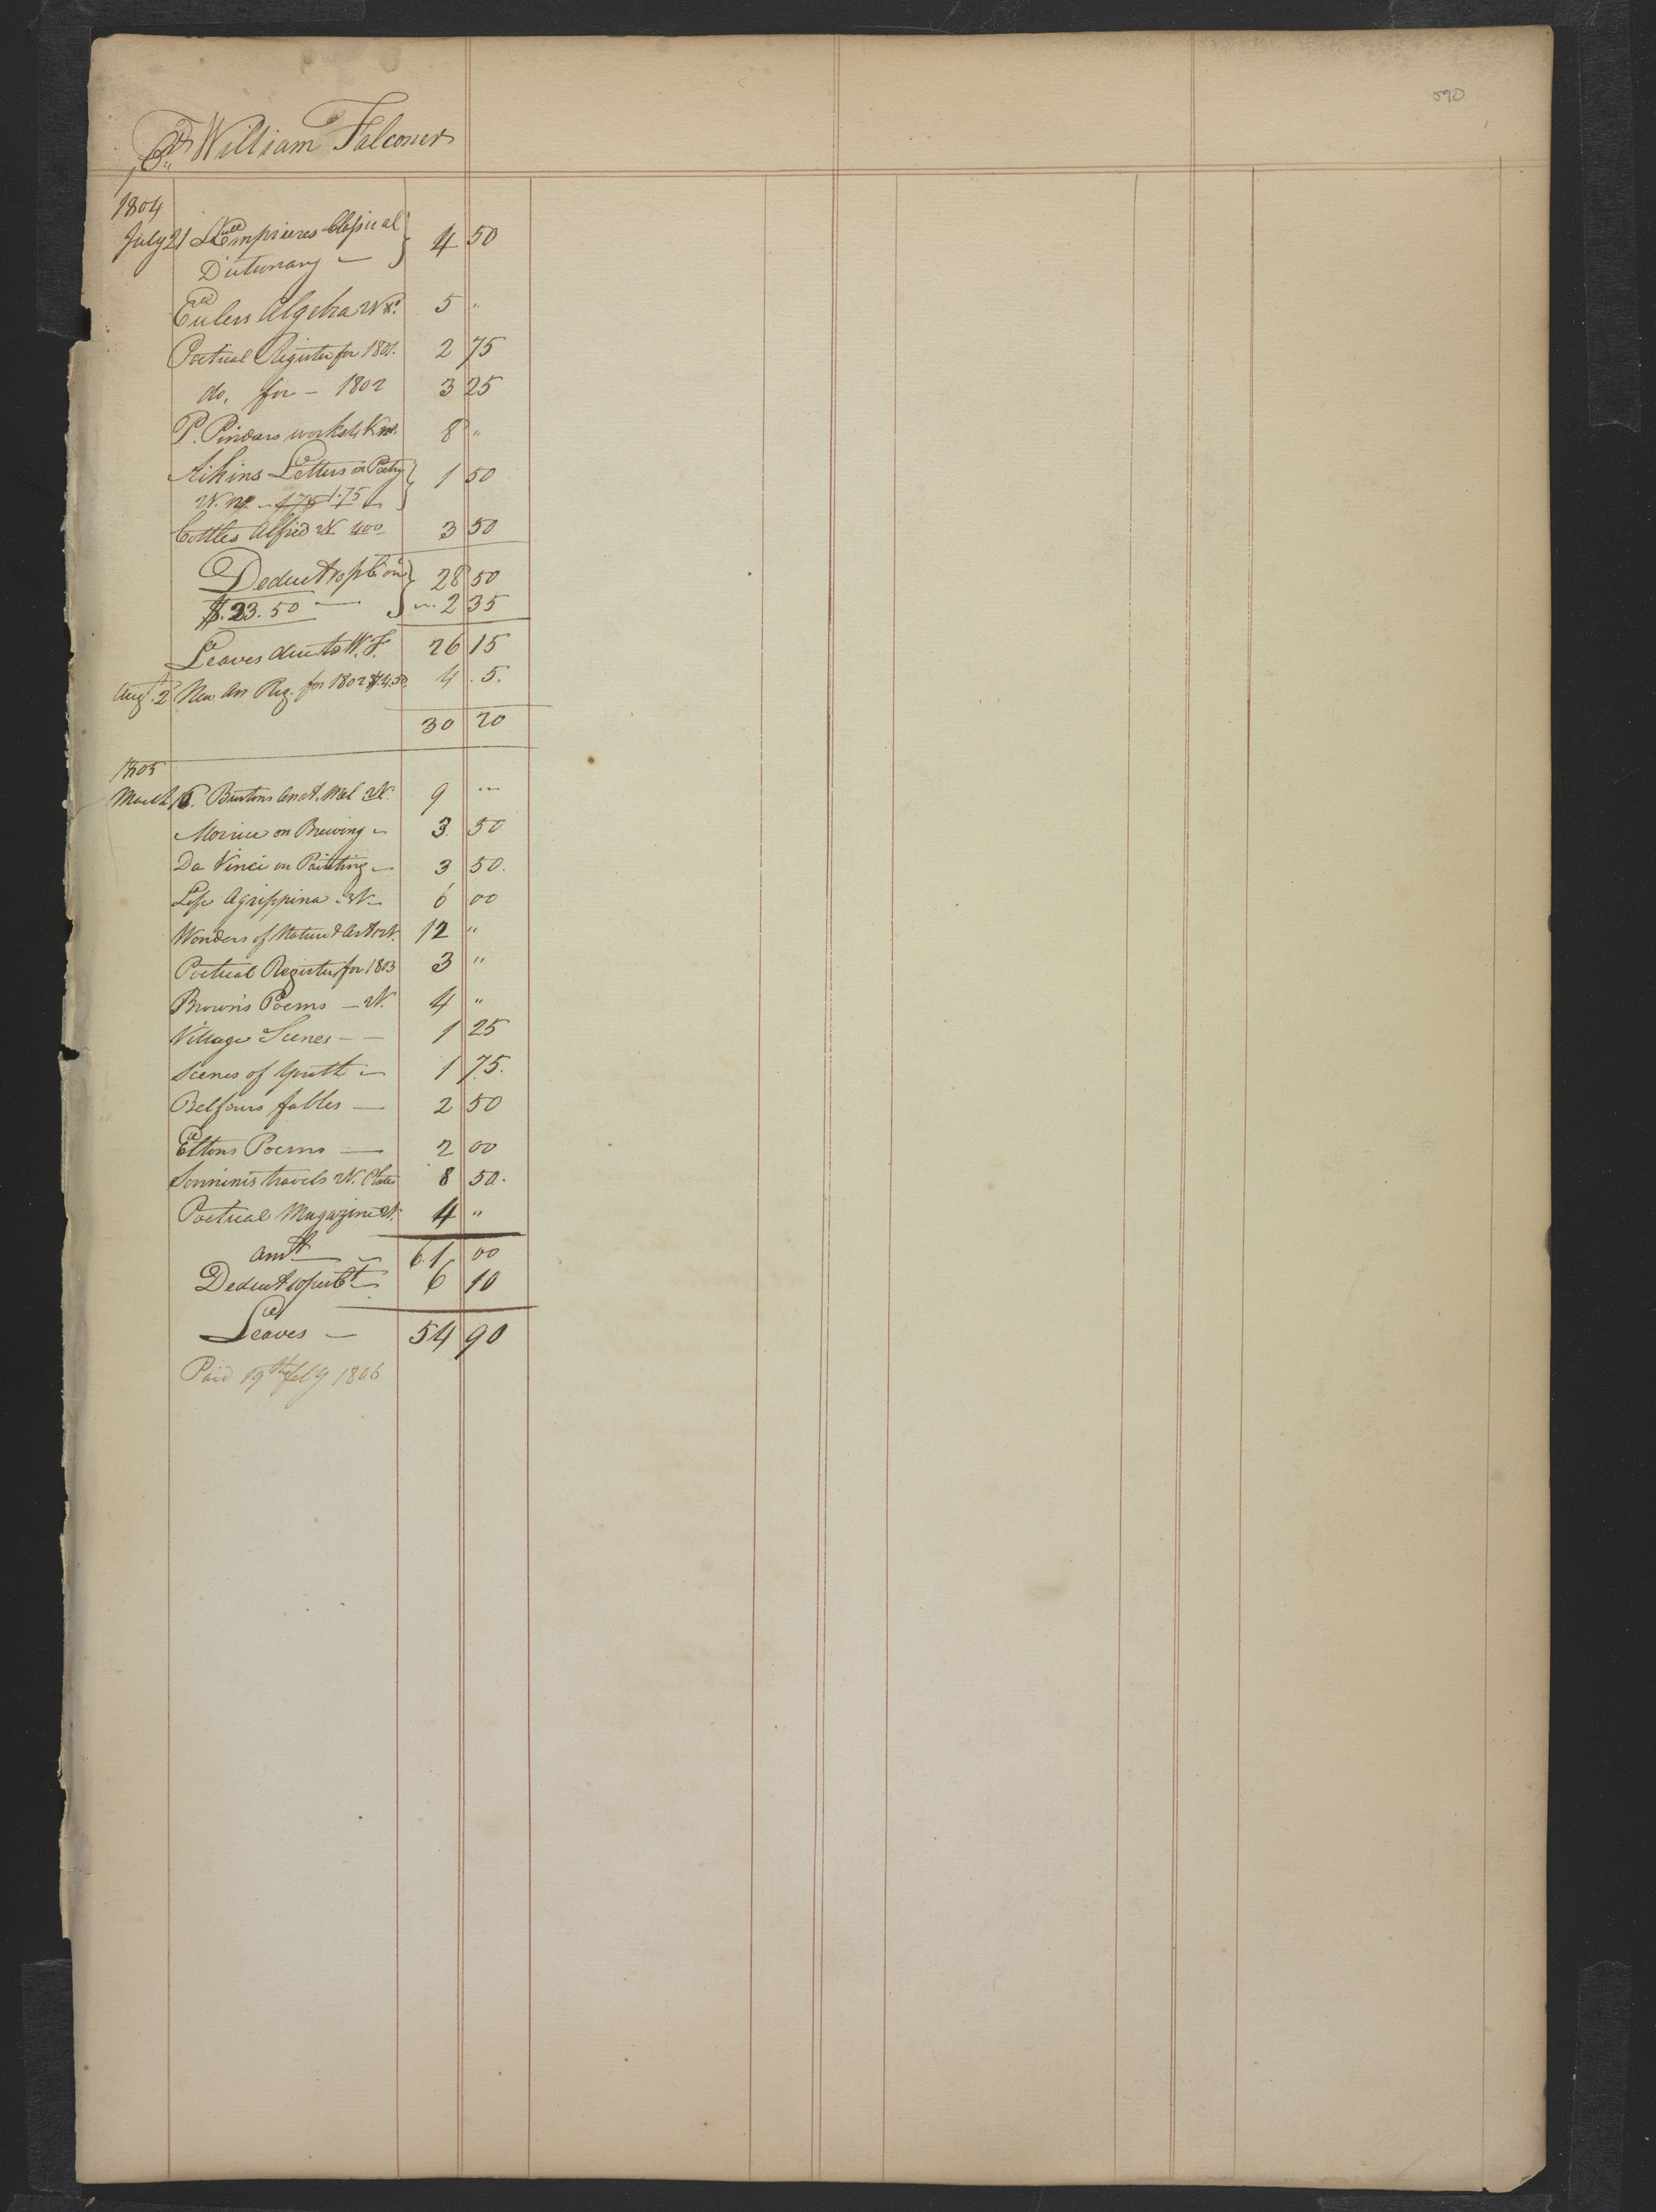 590
William Falconer
1804
July 21 Lemprieres Classical } 4 50
Dictionary —
Eulers Algebra 2 V. 5 "
Poetical Register for 1801. 2 75
do. for – 1802 3 25
P. Pindars works 4 V. 8 "
Aikins Letters on Poetry } 1 50
1.75
Cottles Alfred 2 V. 400 3 50
Deduct 10 p Ct on } 28 50
$.23.50 — 2 35
Leaves due to W. F. 26 15
Aug.t 2 New An Reg. for 1802 $4.50 4 . 5.
30 20
1805
March 16. Burtons Anat. Mel 2 V. 9 "
Morrice on Brewing – 3. 50
Da Vinci on Painting – 3 50.
Life Agrippina 3 V. – 6 00
Wonders of Nature & Art 12 V. 12 "
Poetical Register for 1803 3 "
Brown's Poems – 2 V. 4 "
Village Scenes – – 1 25
Scenes of Youth – 1 75.
Belfours fables — 2 50
Eltons Poems — 2 00
Sonninis travels 2 V. Plates 8 50.
Poetical Magazine 2 V. 4 "
amt – 61 00
Deduct 10 per Ct – 6 10
Leaves – 54 90
Paid 19th feby 1806